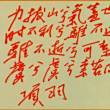 力拔山兮氣蓋世
时不利兮骓不逝
骓不逝兮可奈何
虞兮虞兮奈若何
项羽